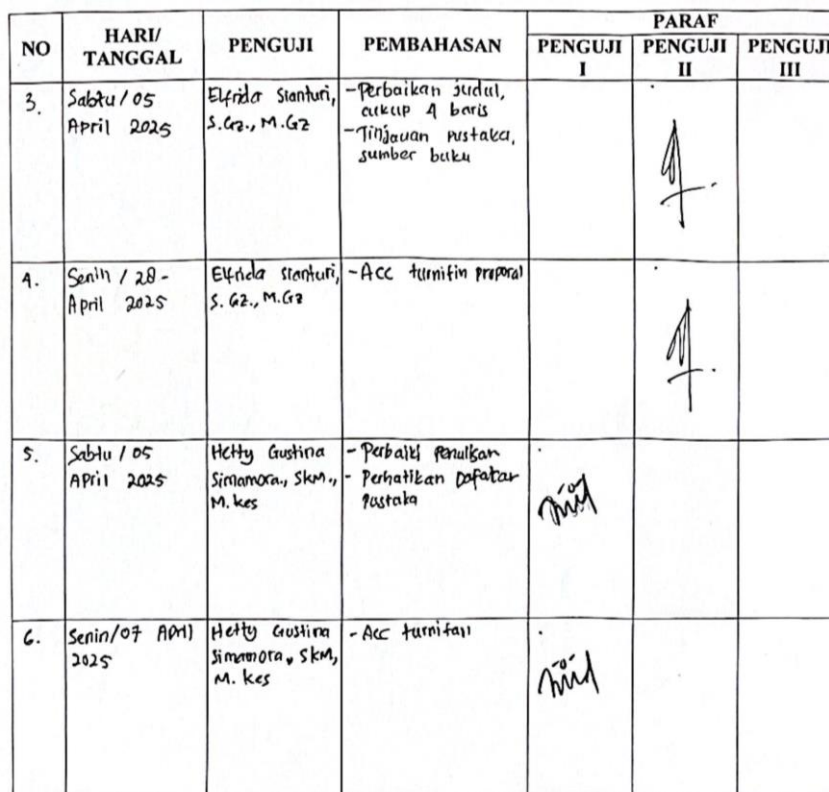 NO
HARI/
TANGGAL
PENGUJI
PEMBAHASAN
PARAF
PENGUJI
I
PENGUJI
II
PENGUJI
III
3.
Sabtu / 05
April 2025
Elfrida Sianturi,
S.Gz., M.Gz
- Perbaikan judul,
cukup 4 baris
- Tinjauan pustaka,
sumber buku
4.
Senin / 28 -
April 2025
Elfrida Sianturi,
S. Gz., M.Gz
- Acc turnitin proporal
5.
Sabtu / 05
April 2025
Hetty Gustina
Simamora., SKM.,
M. kes
- Perbaiki Penulisan
- Perhatikan Dafatar
Pustaka
6.
Senin/07 April
2025
Hetty Gustina
Simamora, SKM,
M. kes
- Acc